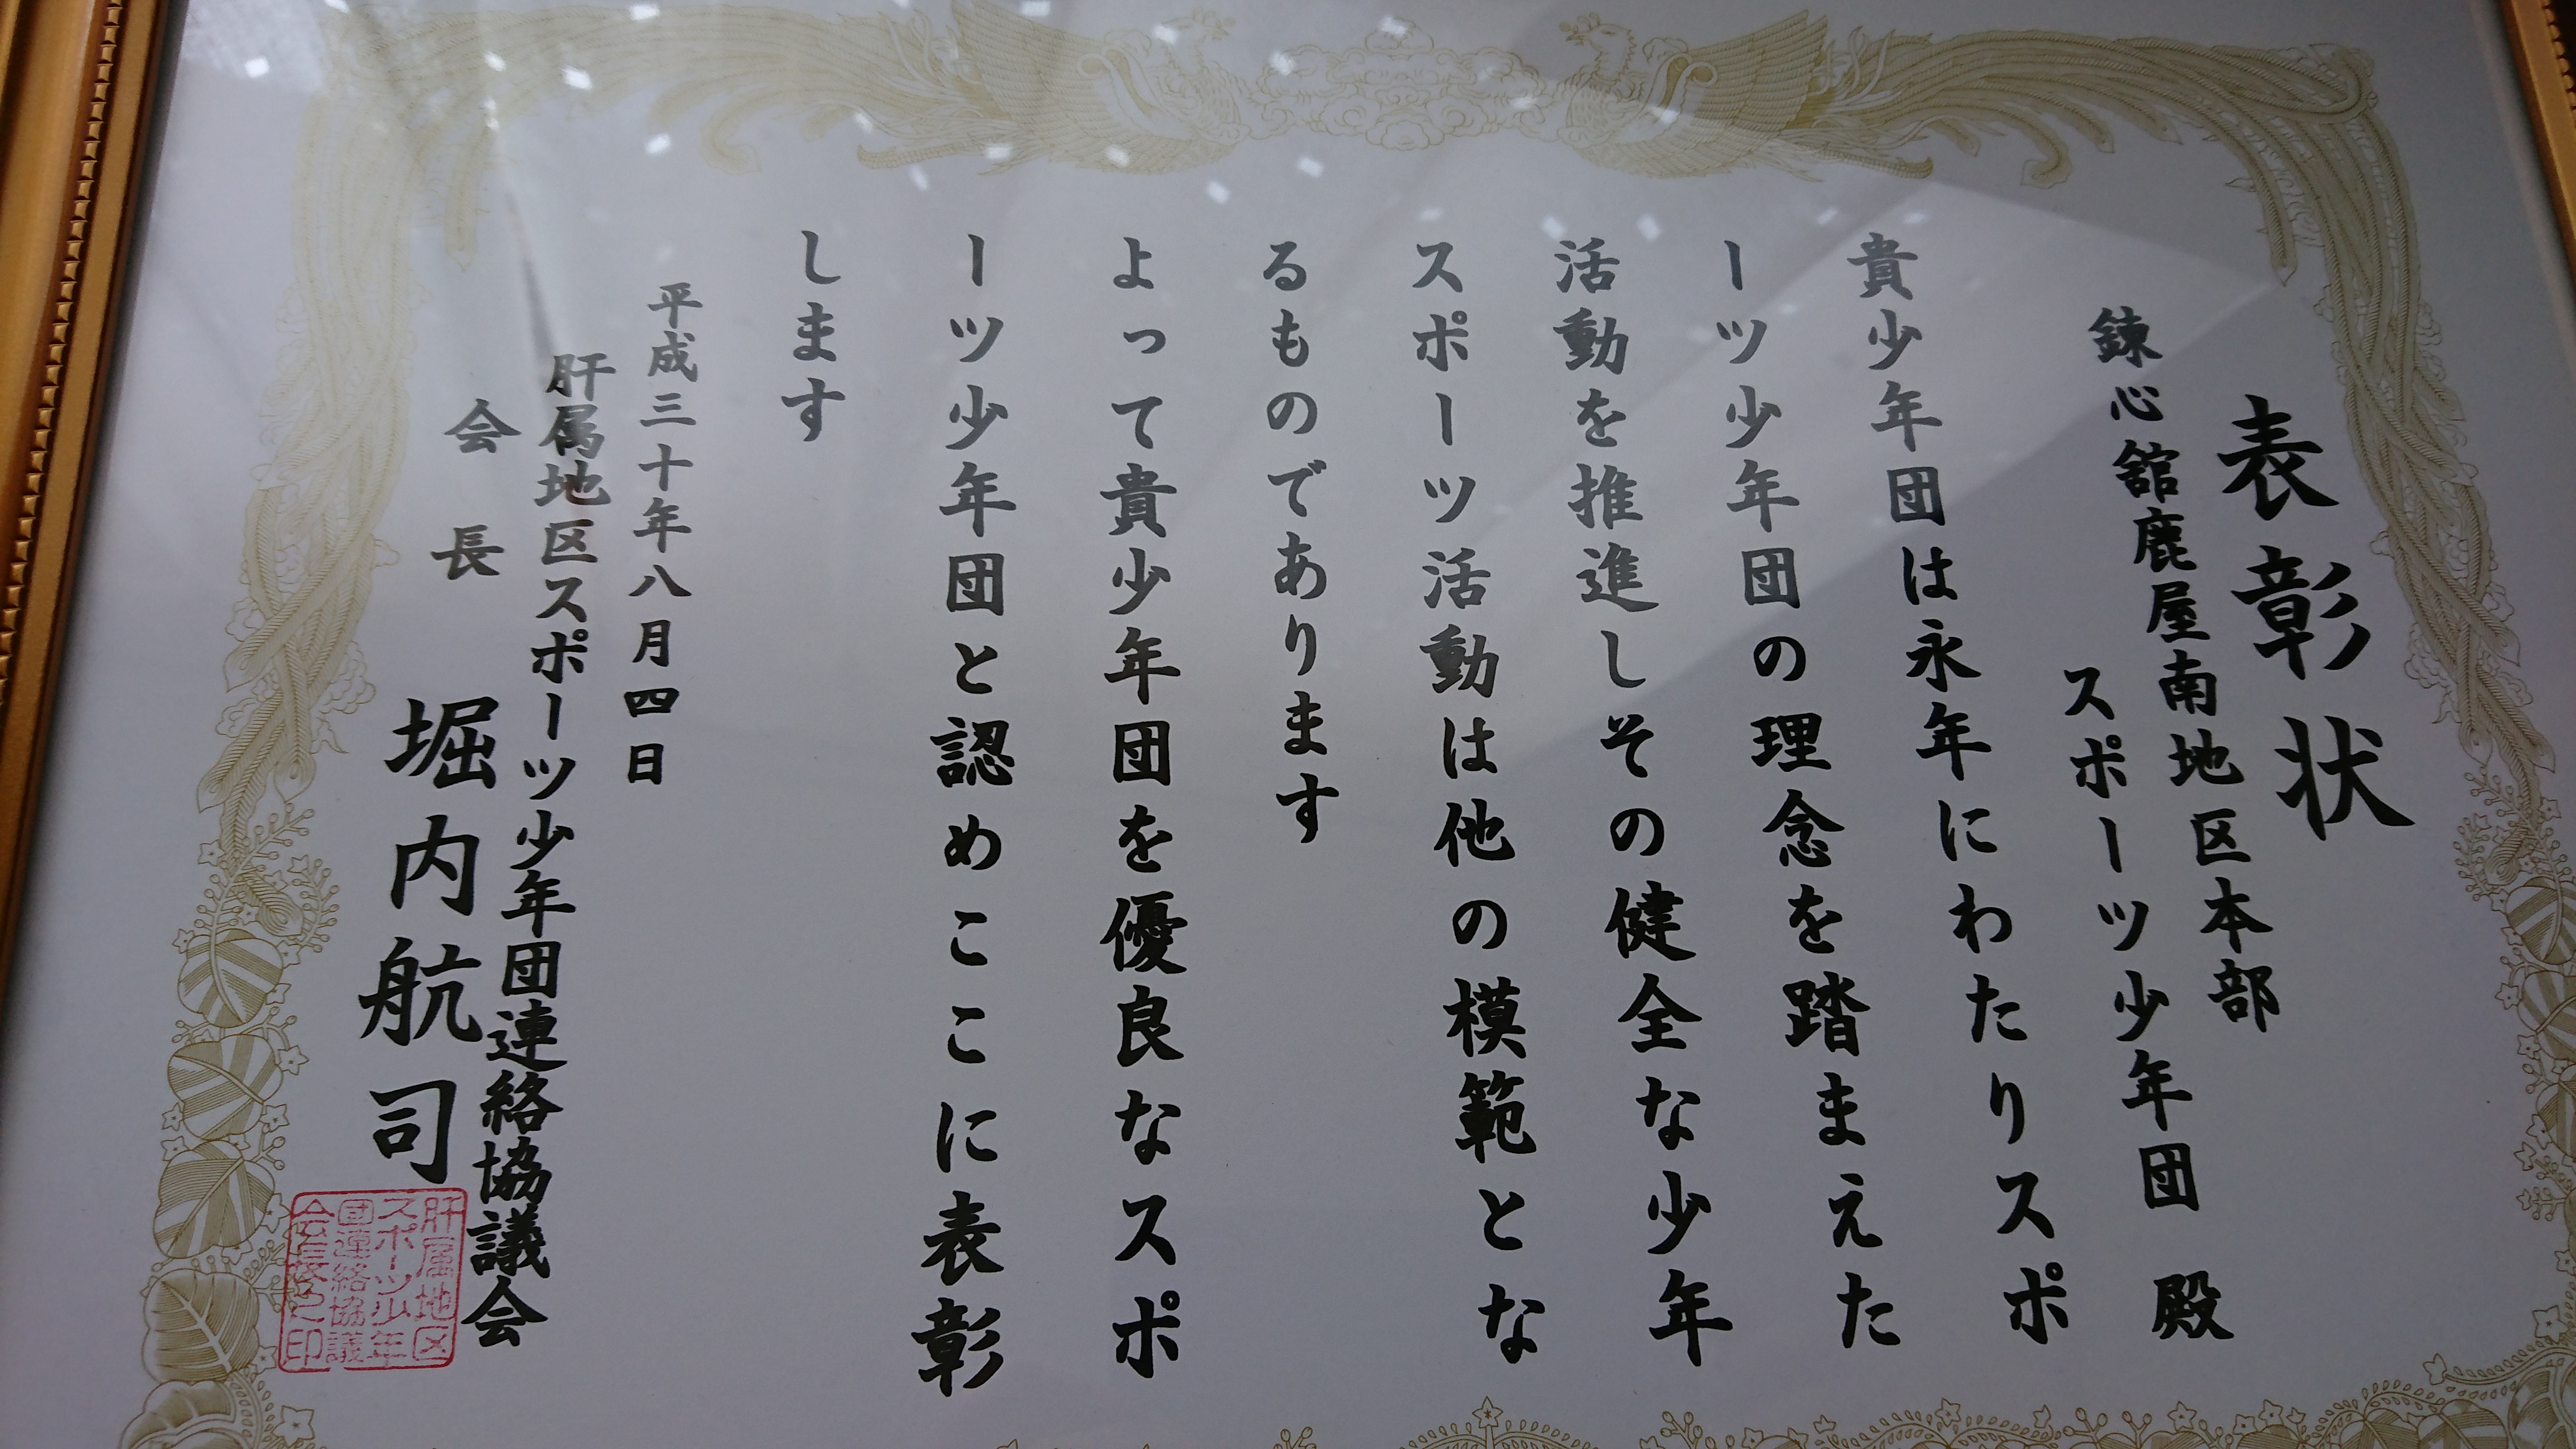 表彰状
錬心舘鹿屋南地区本部
スポーツ少年団 殿
貴少年団は永年にわたりスポ
ーツ少年団の理念を踏まえた
活動を推進しその健全な少年
スポーツ活動は他の模範とな
るものであります
よって貴少年団を優良なスポ
ーツ少年団と認めここに表彰
します
平成三十年八月四日
肝属地区スポーツ少年団連絡協議会
会長 堀内航司
肝属地区
スポーツ少年
団連絡協議
会会長之印